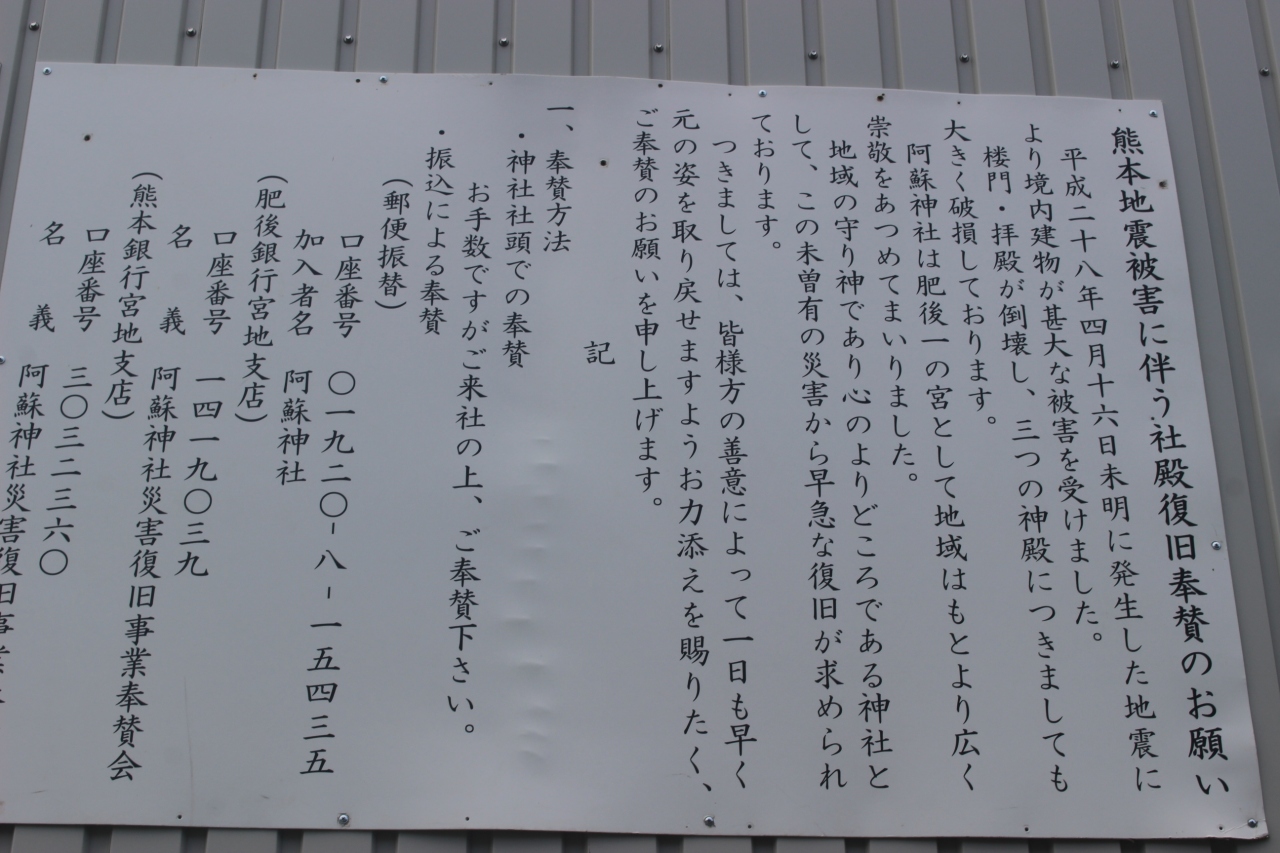 熊本地震被害に伴う社殿復旧奉賛のお願い
平成二十八年四月十六日未明に発生した地震に
より境内建物が甚大な被害を受けました。
楼門・拝殿が倒壊し、三つの神殿につきましても
大きく破損しております。
阿蘇神社は肥後一の宮として地域はもとより広く
崇敬をあつめてまいりました。
地域の守り神であり心のよりどころである神社と
して、この未曽有の災害から早急な復旧が求められ
ております。
つきましては、皆様方の善意によって一日も早く
元の姿を取り戻せますようお力添えを賜りたく、
ご奉賛のお願いを申し上げます。
記
一、奉賛方法
・神社社頭での奉賛
お手数ですがご来社の上、ご奉賛下さい。
・振込による奉賛
(郵便振替)
口座番号 〇一九二〇-八-一五四三五
加入者名 阿蘇神社
(肥後銀行宮地支店)
口座番号 一四一九〇三九
名義 阿蘇神社災害復旧事業奉賛会
(熊本銀行宮地支店)
口座番号 三〇三二三六〇
名義 阿蘇神社災害復旧事業